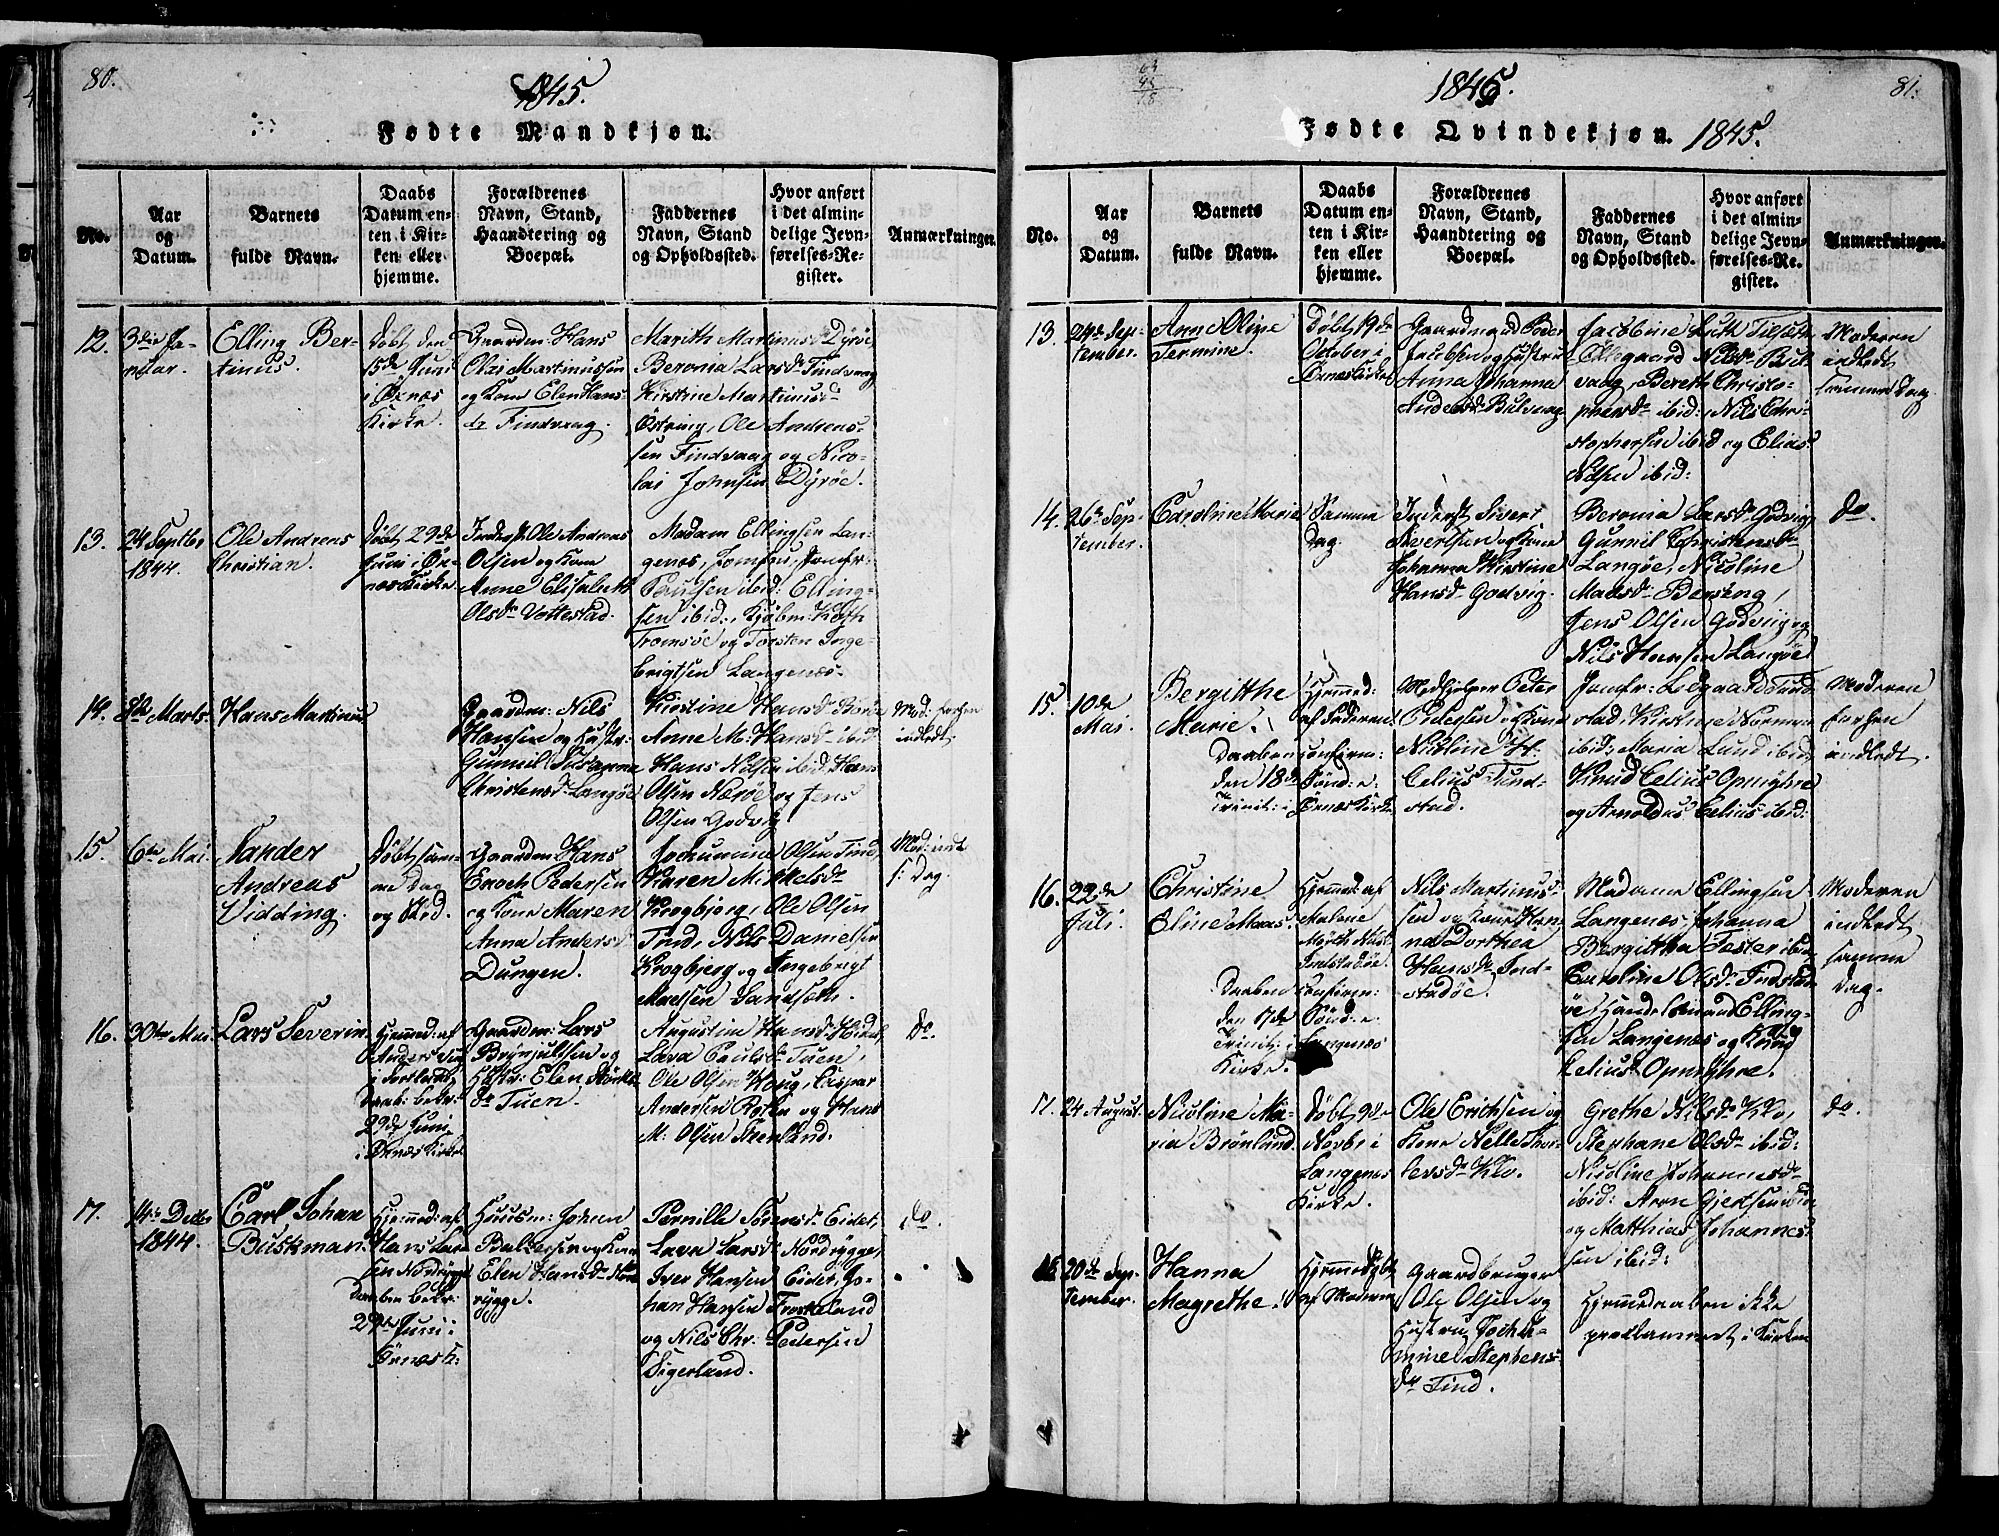 80.
1845.
Fødte Mandkjøn.
No.
Aar
og
Datum.
Barnets
fulde Navn.
Daabs
Datum en-
ten i Kir-
ken eller
hjemme.
Forældrenes
Navn, Stand,
Haandtering og
Boepæl.
Faddernes
Navn, Stand
og Opholdssted.
Hvor anført
i det almin-
delige Jevn-
førelses-Re-
gister.
Anmærkninger.
12.
3die Ja-
nuar.
Elling Ber-
tinus.
Døbt den
15de Juni
i Øxnes
Kirke.
Gaardm: Hans
Olai Martinussen
og Kone Elen Hans-
dr Findvaag.
Marith Martinusd: Dyrøe
Beronia Larsd: Findvaag
Kirstine Martinusd:
Østring, Ole Andreas-
sen Findvaag og Nico-
lai Johnsen Dyrøe.
13.
24 Septbr
1844.
Ole Andreas
Christian.
Døbt 29de
Juni i Øx-
nes Kirke
Inderst Ole Andreas
Olsen og Kone
Anne Elisabeth
Olsdr Vottestad.
Madam Ellingsen Lan-
genæs, Jomfru
Paulsen ibid: Elling-
sen ibid:, Kjøbm: Koth
Tromsøe og Torsten Inge-
brigtsen Langenæs.
14.
8de Marts.
Hans Martinus
Gaardm: Nils
Hansen og Hustr:
Gunnil Susanna
Christensd: Langøe
Kirstine Hansd:
Anne M. Hansd: ibid:
Hans Nilsen ibid, Hans
Olsen Nærøe og Jens
Olsen Godvig
Mod: forhen
indledt.
15.
6te Mai.
Sander
Andreas
Vidding.
Døbt sam-
me Dag
og Sted.
Gaardm: Hans
Enoch Pedersen
og Kone Maren
Anna Andersd:
Dungen.
Jochumine Olsen Tind,
Karen Mikkelsdr
Krogbjerg, Ole Olsen
Tind, Nils Danielsen
Krogbjerg og Ingebrigt
Madsen Sandsæth.
Mod: indt
s: Dag.
16.
30te Mai
Lars Severin
Hjemmed: af
Anders
i Sortland
Daab: bekr:
29de Juni
i Øxnæs Kirke
Gaardm: Lars
Brynjulfsen og
Hustr: Elen
dr Tuen.
Augustine Hansd:
Lava Paulsdr Tuen,
Ole Olsen Haug, Caspar
Andersen og Hans
M: Olsen Steenland.
do.
17.
14de Decbr
1844.
Carl Johan
Buskman.
Hjemmed: af
Hans Lar-
sen Nordrygge
Daaben bekr:
29de Juni i
Øxnæs K:
Huusm: Johan
Baltzersen og Kone
Elen Hansdr Nord-
rygge.
Pernille Sørensdr Eidet,
Lava Larsdr Nordrygge,
Iver Hansen Eidet, Jo-
han Hansen Froskeland
og Nils Chr: Pedersen
Sigerland.
do.
81.
1845.
Fødte Qvindekjøn. 1845.
No.
Aar
og
Datum.
Barnets
fulde Navn.
Daabs
Datum en-
ten i Kir-
ken eller
hjemme.
Forældrenes
Navn, Stand,
Haandtering og
Boepæl.
Faddernes
Navn, Stand
og Opholdssted.
Hvor anført
i det almin-
delige Jevn-
førelses-Re-
gister.
Anmærkninger.
13.
24de Sep-
tember.
Anne Oline
Termine.
Døbt 19de
October i
Øxnæs Kirke
Gaardmand Peder
Jacobsen og Hustru
Anna Johanna
Andersdr Bulvaag.
Jacobine
Ellegaard Nilsdr Bul-
vaag, Bereth Christo-
phersdr ibid: Nils Chri-
stophersen ibid og Elias
Nilsen ibid:
Moderen
indledt
samme Dag.
14.
26de Sep-
tember.
Caroline Marie
Samme
Dag.
Inderst Sivert
Sivertsen og Kone
Johanna Kirstine
Hansd: Godvig.
Beronia Larsd: Godvig,
Gunnil Christensdr
Langøe, Nicoline
Madsdr
Jens Olsen Godviig og
Nils Hansen Langøe
do.
15.
10de
Mai.
Bergitthe
Marie.
Hjemmed:
af Faderen
Daaben confirm:
den 18de Sønd: e:
Trinit: i Øxnæs Kirke
Medhjelper Peter
og Kone
Nicoline H.
Celius Tind-
stad.
Jomfr: Tind-
stad, Kirstine Normann
ibid, Maria Lund ibid,
Knud Celius Opmyhre
og Arnoldus Celius ibid:
Moderen
forhen
indledt.
16.
22de
Juli.
Christine
Eline Maas.
Hjemmed: af
Malene
Daaben confirm:
den 17de Sønd: e:
Trinit: i Langenæs
Kirke.
Nils Martinus-
sen og Kone Han-
na Dorthea
Hansdr Ind-
stadøe.
Madame Ellingsen
Langenæs, Johanna
Bergitta ibid
Caroline Olsdr Indstad-
øe, Handelsmand Elling-
sen Langenæs og Knud
Celius Opmyhre.
Moderen
indledt
samme
Dag.
17.
24 August
Nicoline Ma-
ria Brønlund.
Døbt 9de
Novbr i
Langenes
Kirke
Ole Erichsen og
Kone Nelle
Klo.
Grethe Nilsdr Klo,
Stephane Olsdr ibid:
Nicoline Johannesdr
ibid: Aron Gjertsen
og Matthias Johannes-
sen ibid:
do.
18.
20de Sep-
tember.
Hanna
Magrethe.
Hjemmedøbt
af Moderen
Gaardbruger
Ole Olsen og
Hustru Jochu-
mine Stephens-
dr Tind.
Hjemmedaaben ikke
proclameret i Kirken